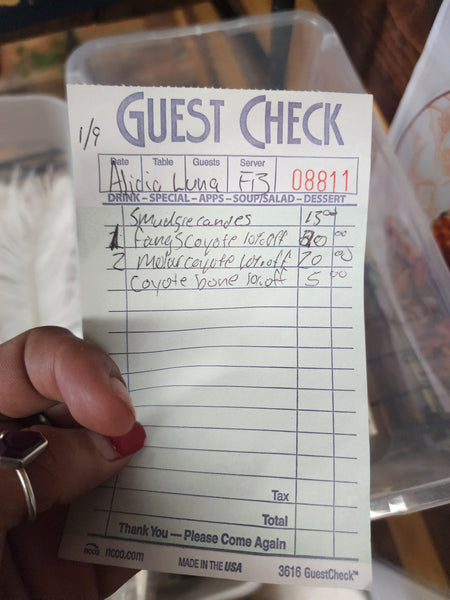 1/9
GUEST CHECK
Date Table Guests Server
Alicia Luna F13 08811
DRINK – SPECIAL – APPS – SOUP/SALAD – DESSERT
Smudgie candles 15 00
1 fangs coyote lot.off 00
2 molar coyote lot.off 20 00
coyote bone lo.off 5 00
Tax
Total
Thank You — Please Come Again
ncco ncco.com MADE IN THE USA 3616 GuestCheck™